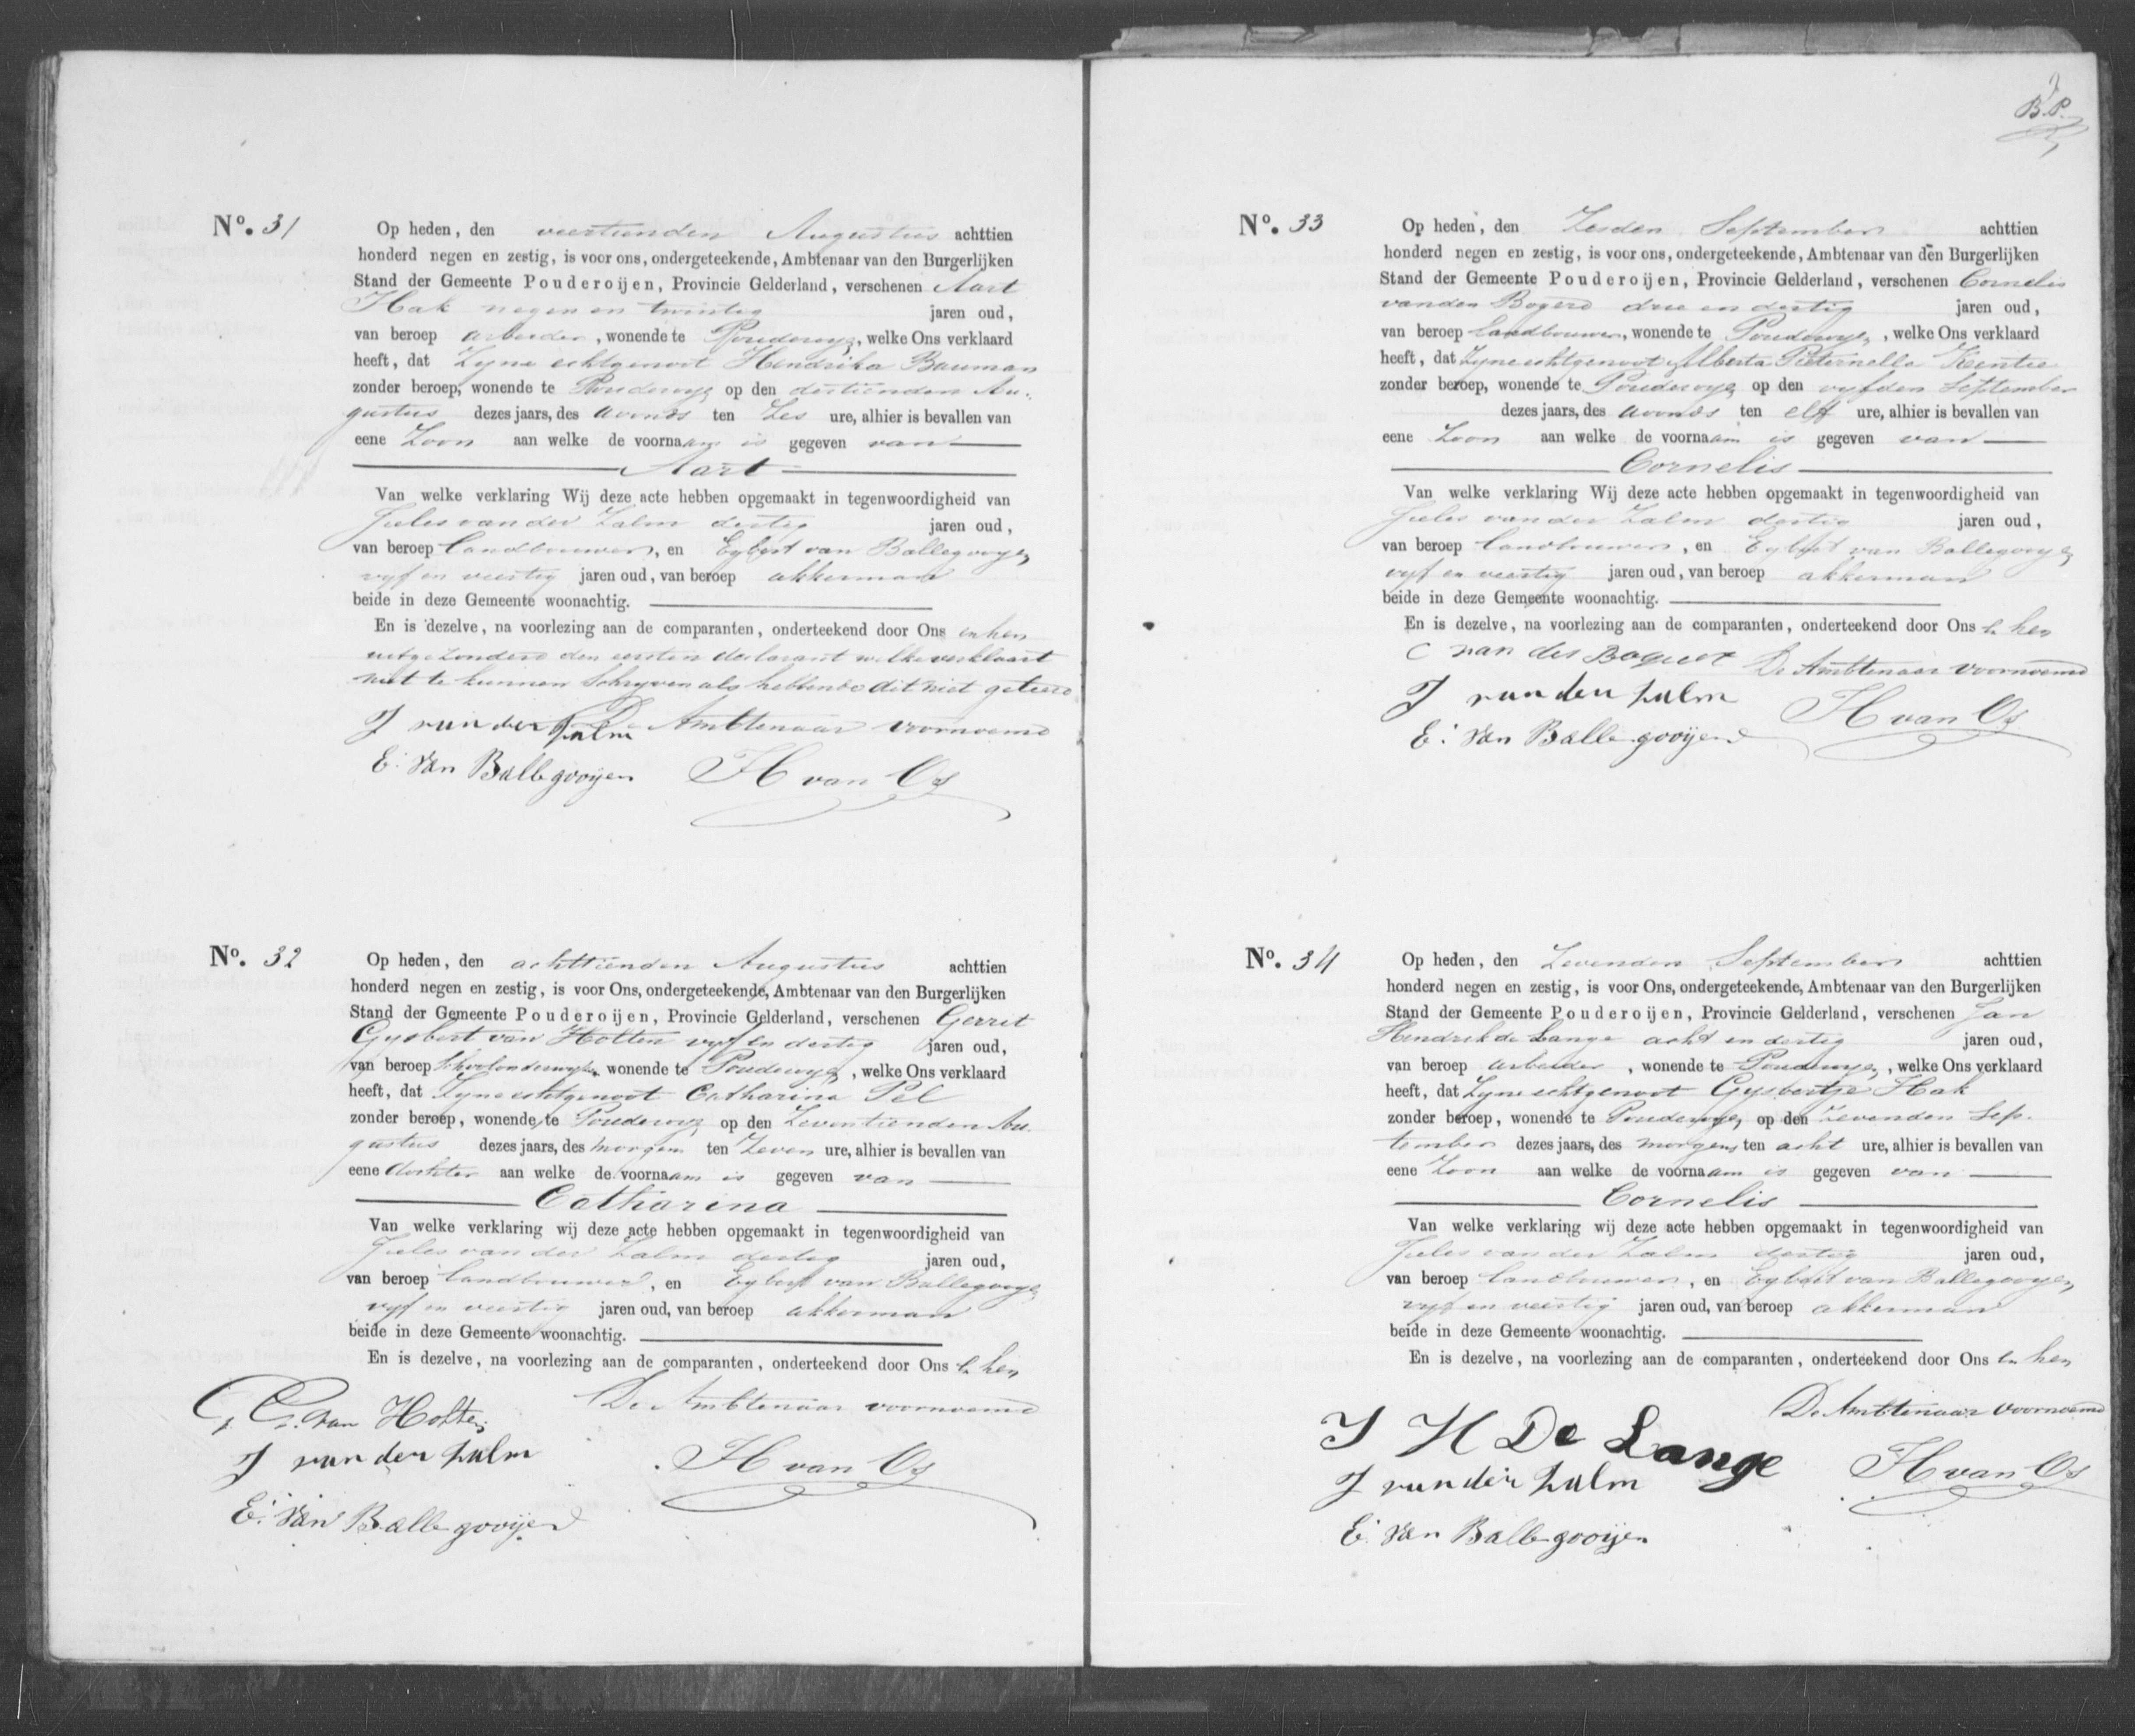 Nº. 31
Op heden, den veertienden Augustus achttien
honderd negen en zestig, is voor ons, ondergeteekende, Ambtenaar van den Burgerlijken
Stand der Gemeente Pouderoijen, Provincie Gelderland, verschenen Aart
Hak negen en twintig jaren oud,
van beroep arbeider, wonende te Pouderoye, welke Ons verklaard
heeft, dat Zyne echtgenoot Hendrika Bauman
zonder beroep, wonende te Pouderoye op den dertienden Au-
gustus dezes jaars, des avonds ten Zes ure, alhier is bevallen van
eene Zoon aan welke de voornaam is gegeven van
Aart
Van welke verklaring Wij deze acte hebben opgemaakt in tegenwoordigheid van
Jieles van der Zalm dertig jaren oud,
van beroep landbouwer, en Egbert van Ballegooye,
vyf en veertig jaren oud, van beroep akkerman
beide in deze Gemeente woonachtig.
En is dezelve, na voorlezing aan de comparanten, onderteekend door Ons en hen
uitgezonderd den eersten declarant welke verklaart
niet te kunnen Schryven als hebbende dit niet geleerd
J van der Zalm De Ambtenaar voornoemd
E. van Ballegooijen H van Os
Nº. 32
Op heden, den achttienden Augustus achttien
honderd negen en zestig, is voor Ons, ondergeteekende, Ambtenaar van den Burgerlijken
Stand der Gemeente Pouderoijen, Provincie Gelderland, verschenen Gerrit
Gysbert van Hotten vyf en dertig jaren oud,
van beroep Schoolonderwyzer, wonende te Pouderoye, welke Ons verklaard
heeft, dat Zyne echtgenoot Catharina Pel
zonder beroep, wonende te Pouderoye op den Zeventienden Au-
gustus dezes jaars, des morgens ten Zeven ure, alhier is bevallen van
eene dochter aan welke de voornaam is gegeven van
Catharina
Van welke verklaring wij deze acte hebben opgemaakt in tegenwoordigheid van
Jieles van der Zalm dertig jaren oud,
van beroep landbouwer, en Egbert van Ballegooye,
vyf en veertig jaren oud, van beroep akkerman
beide in deze Gemeente woonachtig.
En is dezelve, na voorlezing aan de comparanten, onderteekend door Ons en hen
G. G. van Hotten De Ambtenaar voornoemd
J van der Zalm H van Os
E. van Ballegooijen
B.P.
Nº. 33
Op heden, den Zesden September achttien
honderd negen en zestig, is voor ons, ondergeteekende, Ambtenaar van den Burgerlijken
Stand der Gemeente Pouderoijen, Provincie Gelderland, verschenen Cornelis
van den Bogerd drie en dertig jaren oud,
van beroep landbouwer, wonende te Pouderoye, welke Ons verklaard
heeft, dat Zyne echtgenoot Alberta Pieternella Kentie
zonder beroep, wonende te Pouderoye op den vyfden September
dezes jaars, des avonds ten elf ure, alhier is bevallen van
eene Zoon aan welke de voornaam is gegeven van
Cornelis
Van welke verklaring Wij deze acte hebben opgemaakt in tegenwoordigheid van
Jieles van der Zalm dertig jaren oud,
van beroep landbouwer, en Egbert van Ballegooye,
vyf en veertig jaren oud, van beroep akkerman
beide in deze Gemeente woonachtig.
En is dezelve, na voorlezing aan de comparanten, onderteekend door Ons en hen
C van des De Ambtenaar voornoemd
J van der Zalm H van Os
E. van Ballegooijen
Nº. 34
Op heden, den Zevenden September achttien
honderd negen en zestig, is voor Ons, ondergeteekende, Ambtenaar van den Burgerlijken
Stand der Gemeente Pouderoijen, Provincie Gelderland, verschenen Jan
Hendrik de Lange acht en dertig jaren oud,
van beroep arbeider, wonende te Pouderoye, welke Ons verklaard
heeft, dat Zyne echtgenoot Gysbertje Hak
zonder beroep, wonende te Pouderoye op den Zevenden Sep-
tember dezes jaars, des morgens ten acht ure, alhier is bevallen van
eene Zoon aan welke de voornaam is gegeven van
Cornelis
Van welke verklaring wij deze acte hebben opgemaakt in tegenwoordigheid van
Jieles van der Zalm dertig jaren oud,
van beroep landbouwer, en Egbert van Ballegooye,
vyf en veertig jaren oud, van beroep akkerman
beide in deze Gemeente woonachtig.
En is dezelve, na voorlezing aan de comparanten, onderteekend door Ons en hen
De Ambtenaar voornoemd
J H De Lange
J van der Zalm H van Os
E. van Ballegooijen